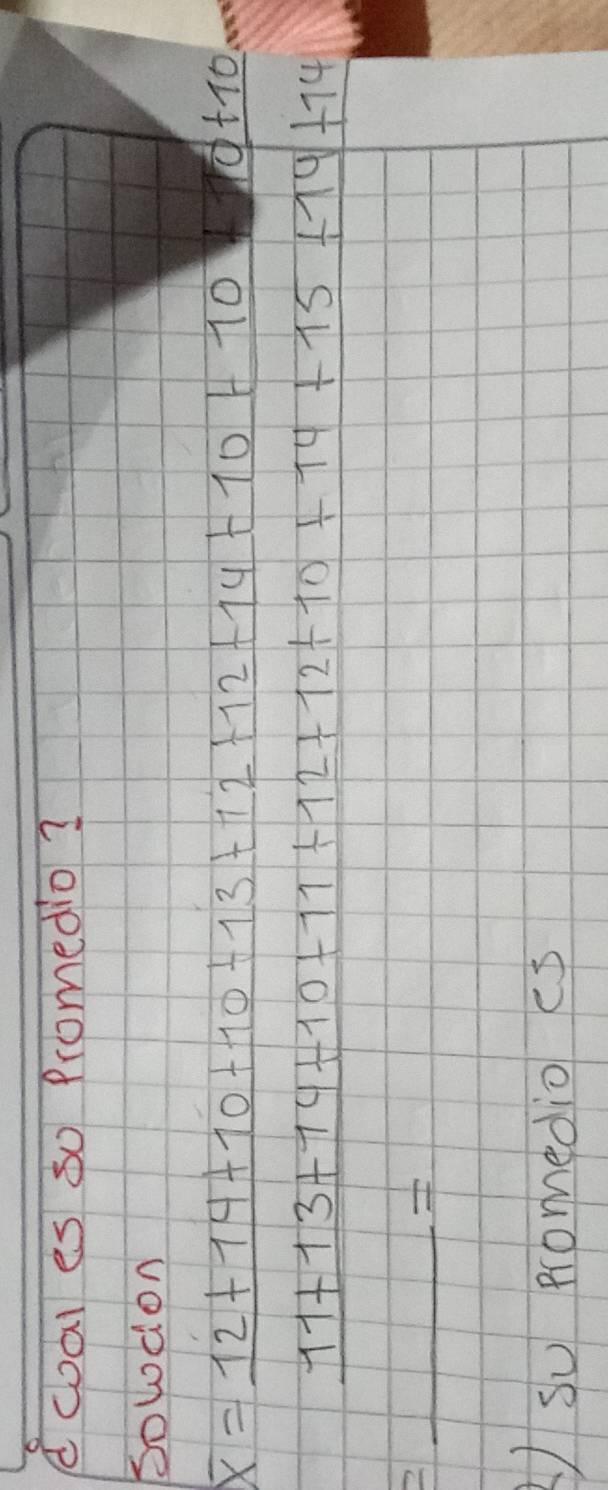 ¿cual es su Promedio?
Solucion
x̄ = 12+14+10+10+13+12+12+14+10+10+10+10
11+13+14+10+11+12+12+10+14+15+14+14
= ____ =
R) su Promedio es